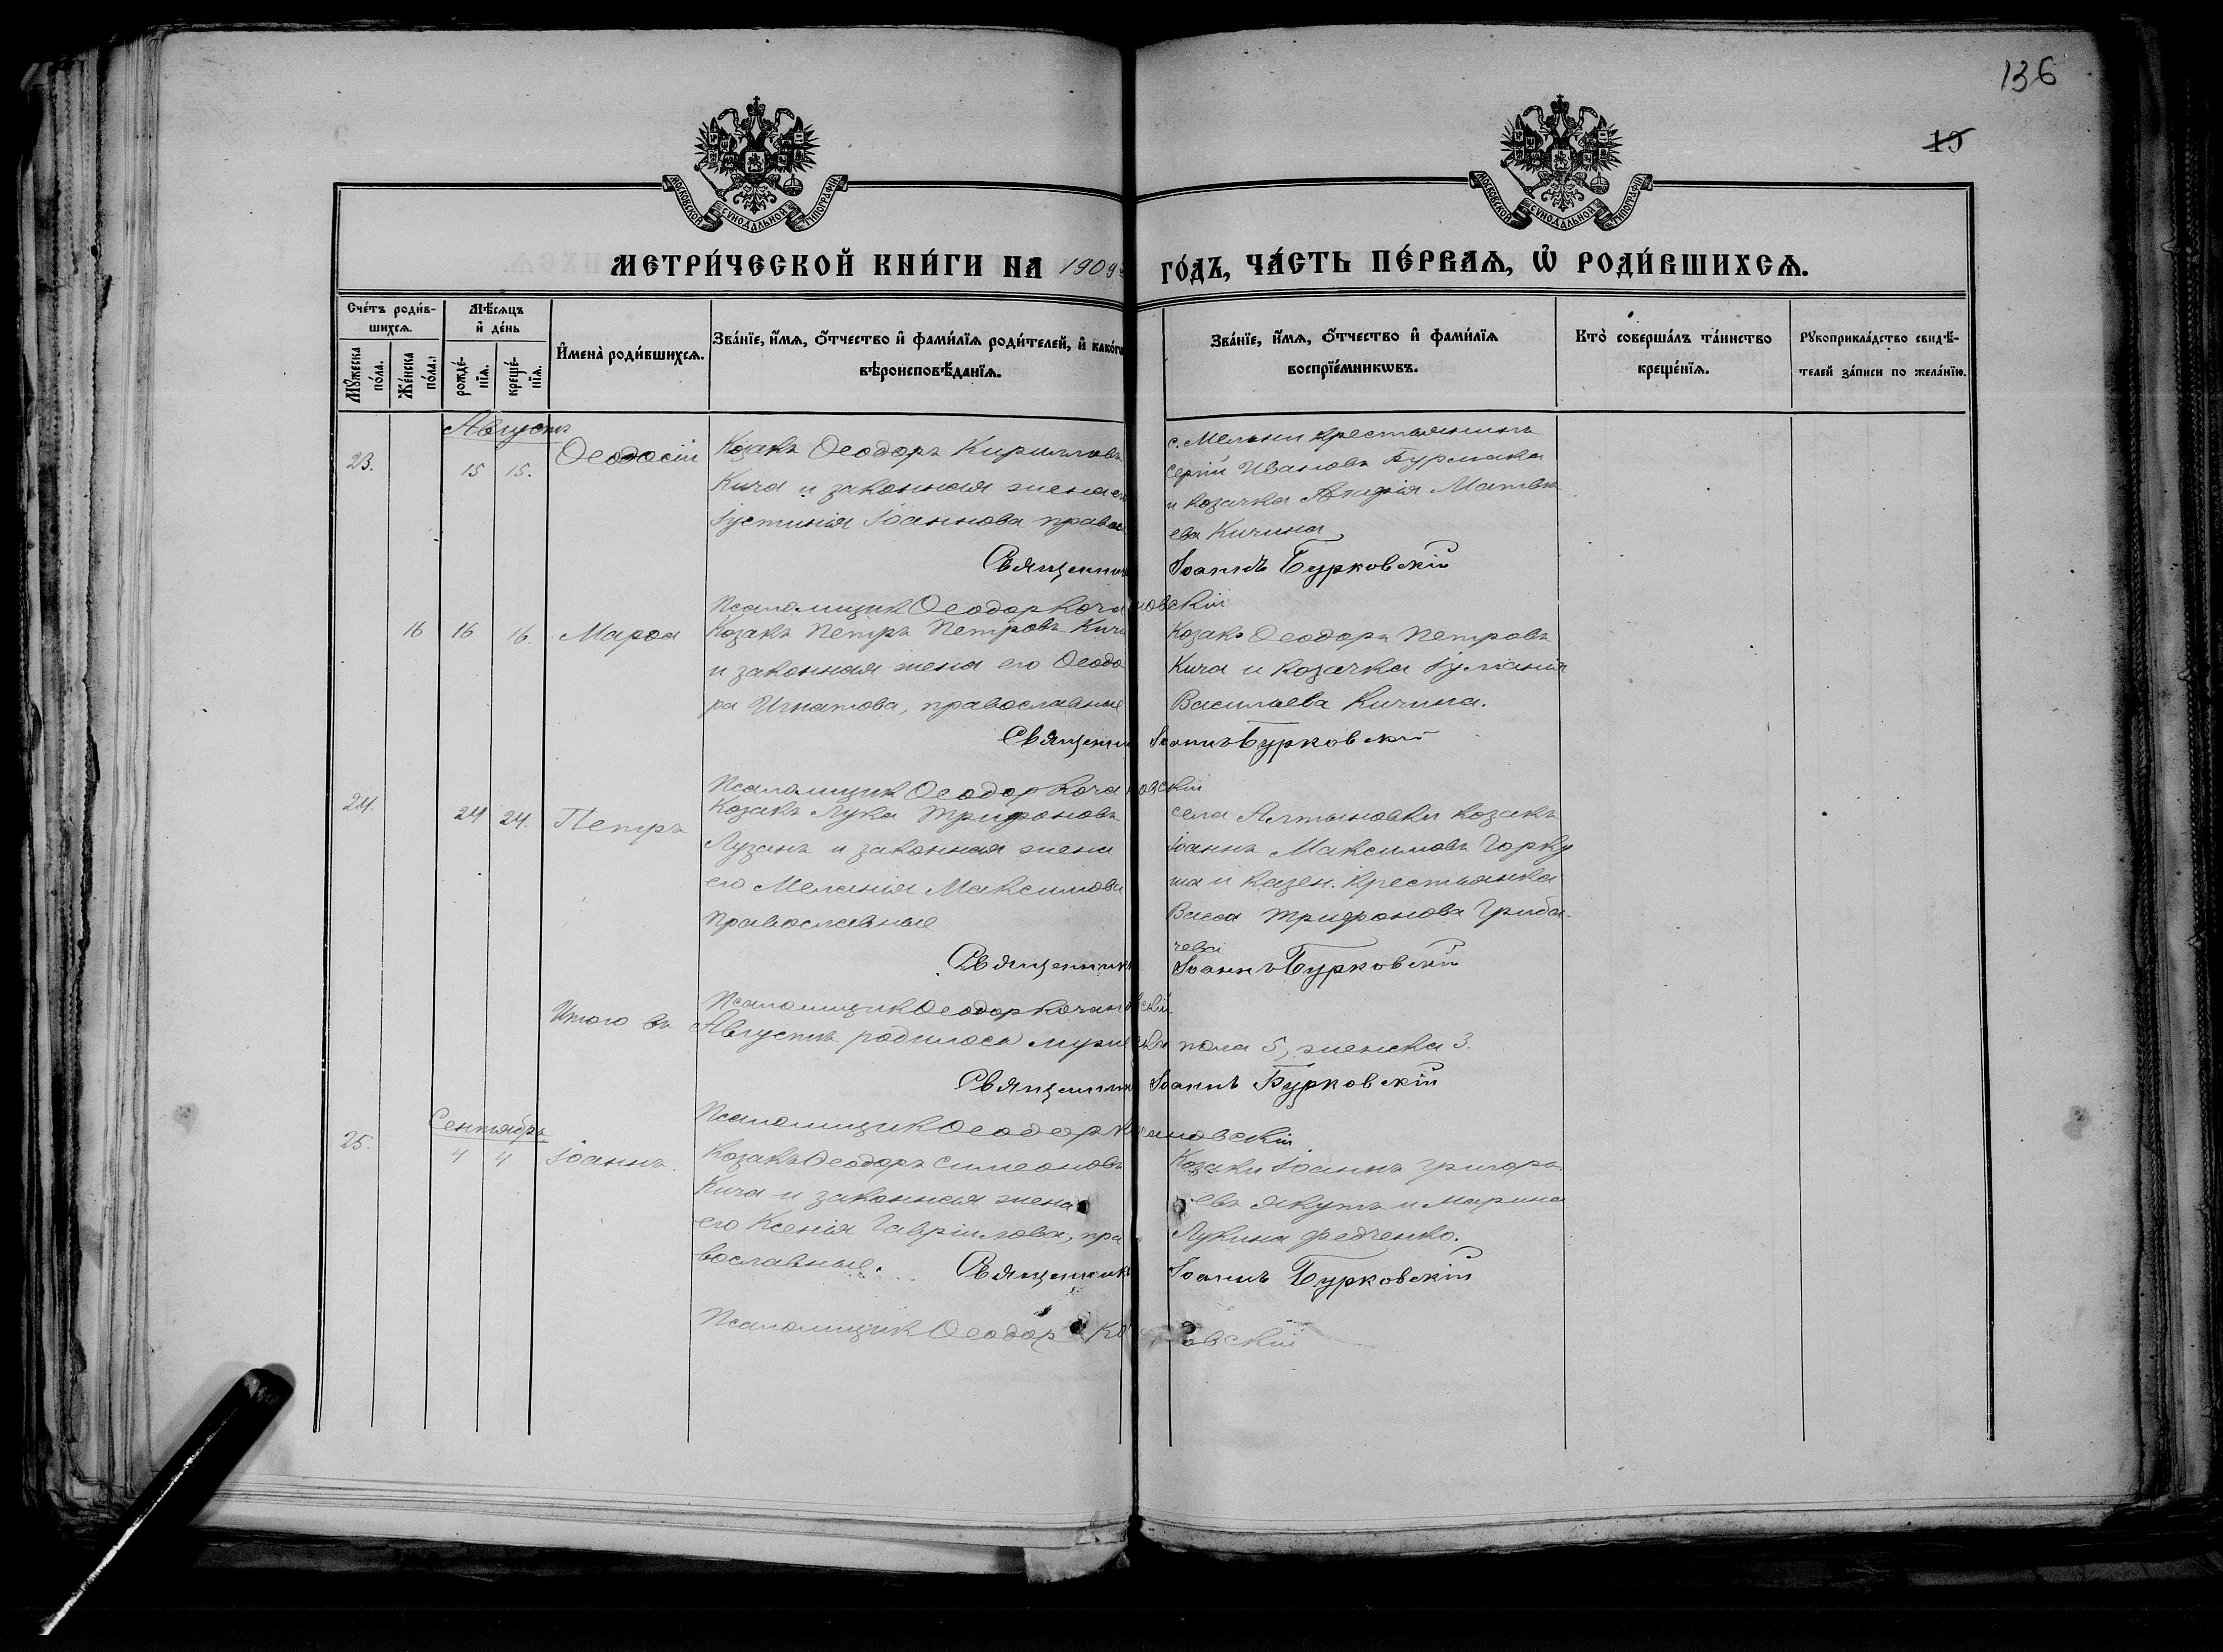 136
19
МОСКОВСКОЙ СѴНОДАЛЬНОЙ ТИПОГРАФІИ
МОСКОВСКОЙ СѴНОДАЛЬНОЙ ТИПОГРАФІИ
МЕТРИ́ЧЕСКОЙ КНИ́ГИ НА 1909й ГО́ДЪ, ЧА́СТЬ ПЕ́РВАѦ, Ѽ РОДИ́ВШИХСѦ.
Сче́тъ роди́в-
шихсѧ.
Мꙋжеска
по́ла.
Же́нска
по́ла.
Мѣ́сѧцъ
и҆ де́нь
рожде́-
нїѧ.
креще́-
нїѧ.
И҆мена̀ роди́вшихсѧ.
Зва́нїе, и҆́мѧ, ѻ҆́тчество и҆ фами́лїѧ роди́телей, и҆ како́гѡ
вѣроисповѣ́данїѧ.
Зва́нїе, и҆́мѧ, ѻ҆́тчество и҆ фами́лїѧ
воспрїе́мникѡвъ.
Кто̀ соверша́лъ та́инство
креще́нїѧ.
Рꙋкоприкла́дство свидѣ́-
телей за́писи по жела́нїю.
Августъ
23. 15 15. Ѳеодосій
Козакъ Ѳеодоръ Кирилловъ
Кича и законная жена его
Іустинія Іоаннова правосл
с. Мельни крестьянинъ
Сергій Ивановъ Бурмака
и козачка Матвѣ
ева Кичина
Священникъ Іоаннъ Бурковскій
Псаломщик Ѳеодор Кочановскій
16 16 16. Марѳа
Козакъ Петръ Петровъ Кича
и законная жена его Ѳеодо
ра Игнатова, православные
Козакъ Ѳеодоръ Петровъ
Кича и козачка Іуліанія
Васильева Кичина.
Священник Іоаннъ Бурковскій
Псаломщик Ѳеодор Кочановскій
24. 24 24. Петръ
Козакъ Лука Трифоновъ
Лузанъ и законная жена
его Меланія Максимова
православные
села Алтыновки козакъ
Іоаннъ Максимовъ Горку
ша и казен. крестьянка
Васса Трифонова Триба-
чева
Священникъ Іоаннъ Бурковскій
Псаломщик Ѳеодор Кочановскій
Итого въ Августѣ родилось мужеска пола 5, женска 3.
Священник Іоаннъ Бурковскій
Псаломщик Ѳеодор Кочановскій
Сентябрь
25. 4 4 Іоаннъ.
Козакъ Ѳеодоръ Симеоновъ
Кича и законная жена
его Ксенія Гавріилова, пра
вославные.
Козаки Іоаннъ Григорь
евъ Якутъ и Марина
Лукина Федченко.
Священникъ Іоаннъ Бурковскій
Псаломщик Ѳеодор Кочановскій